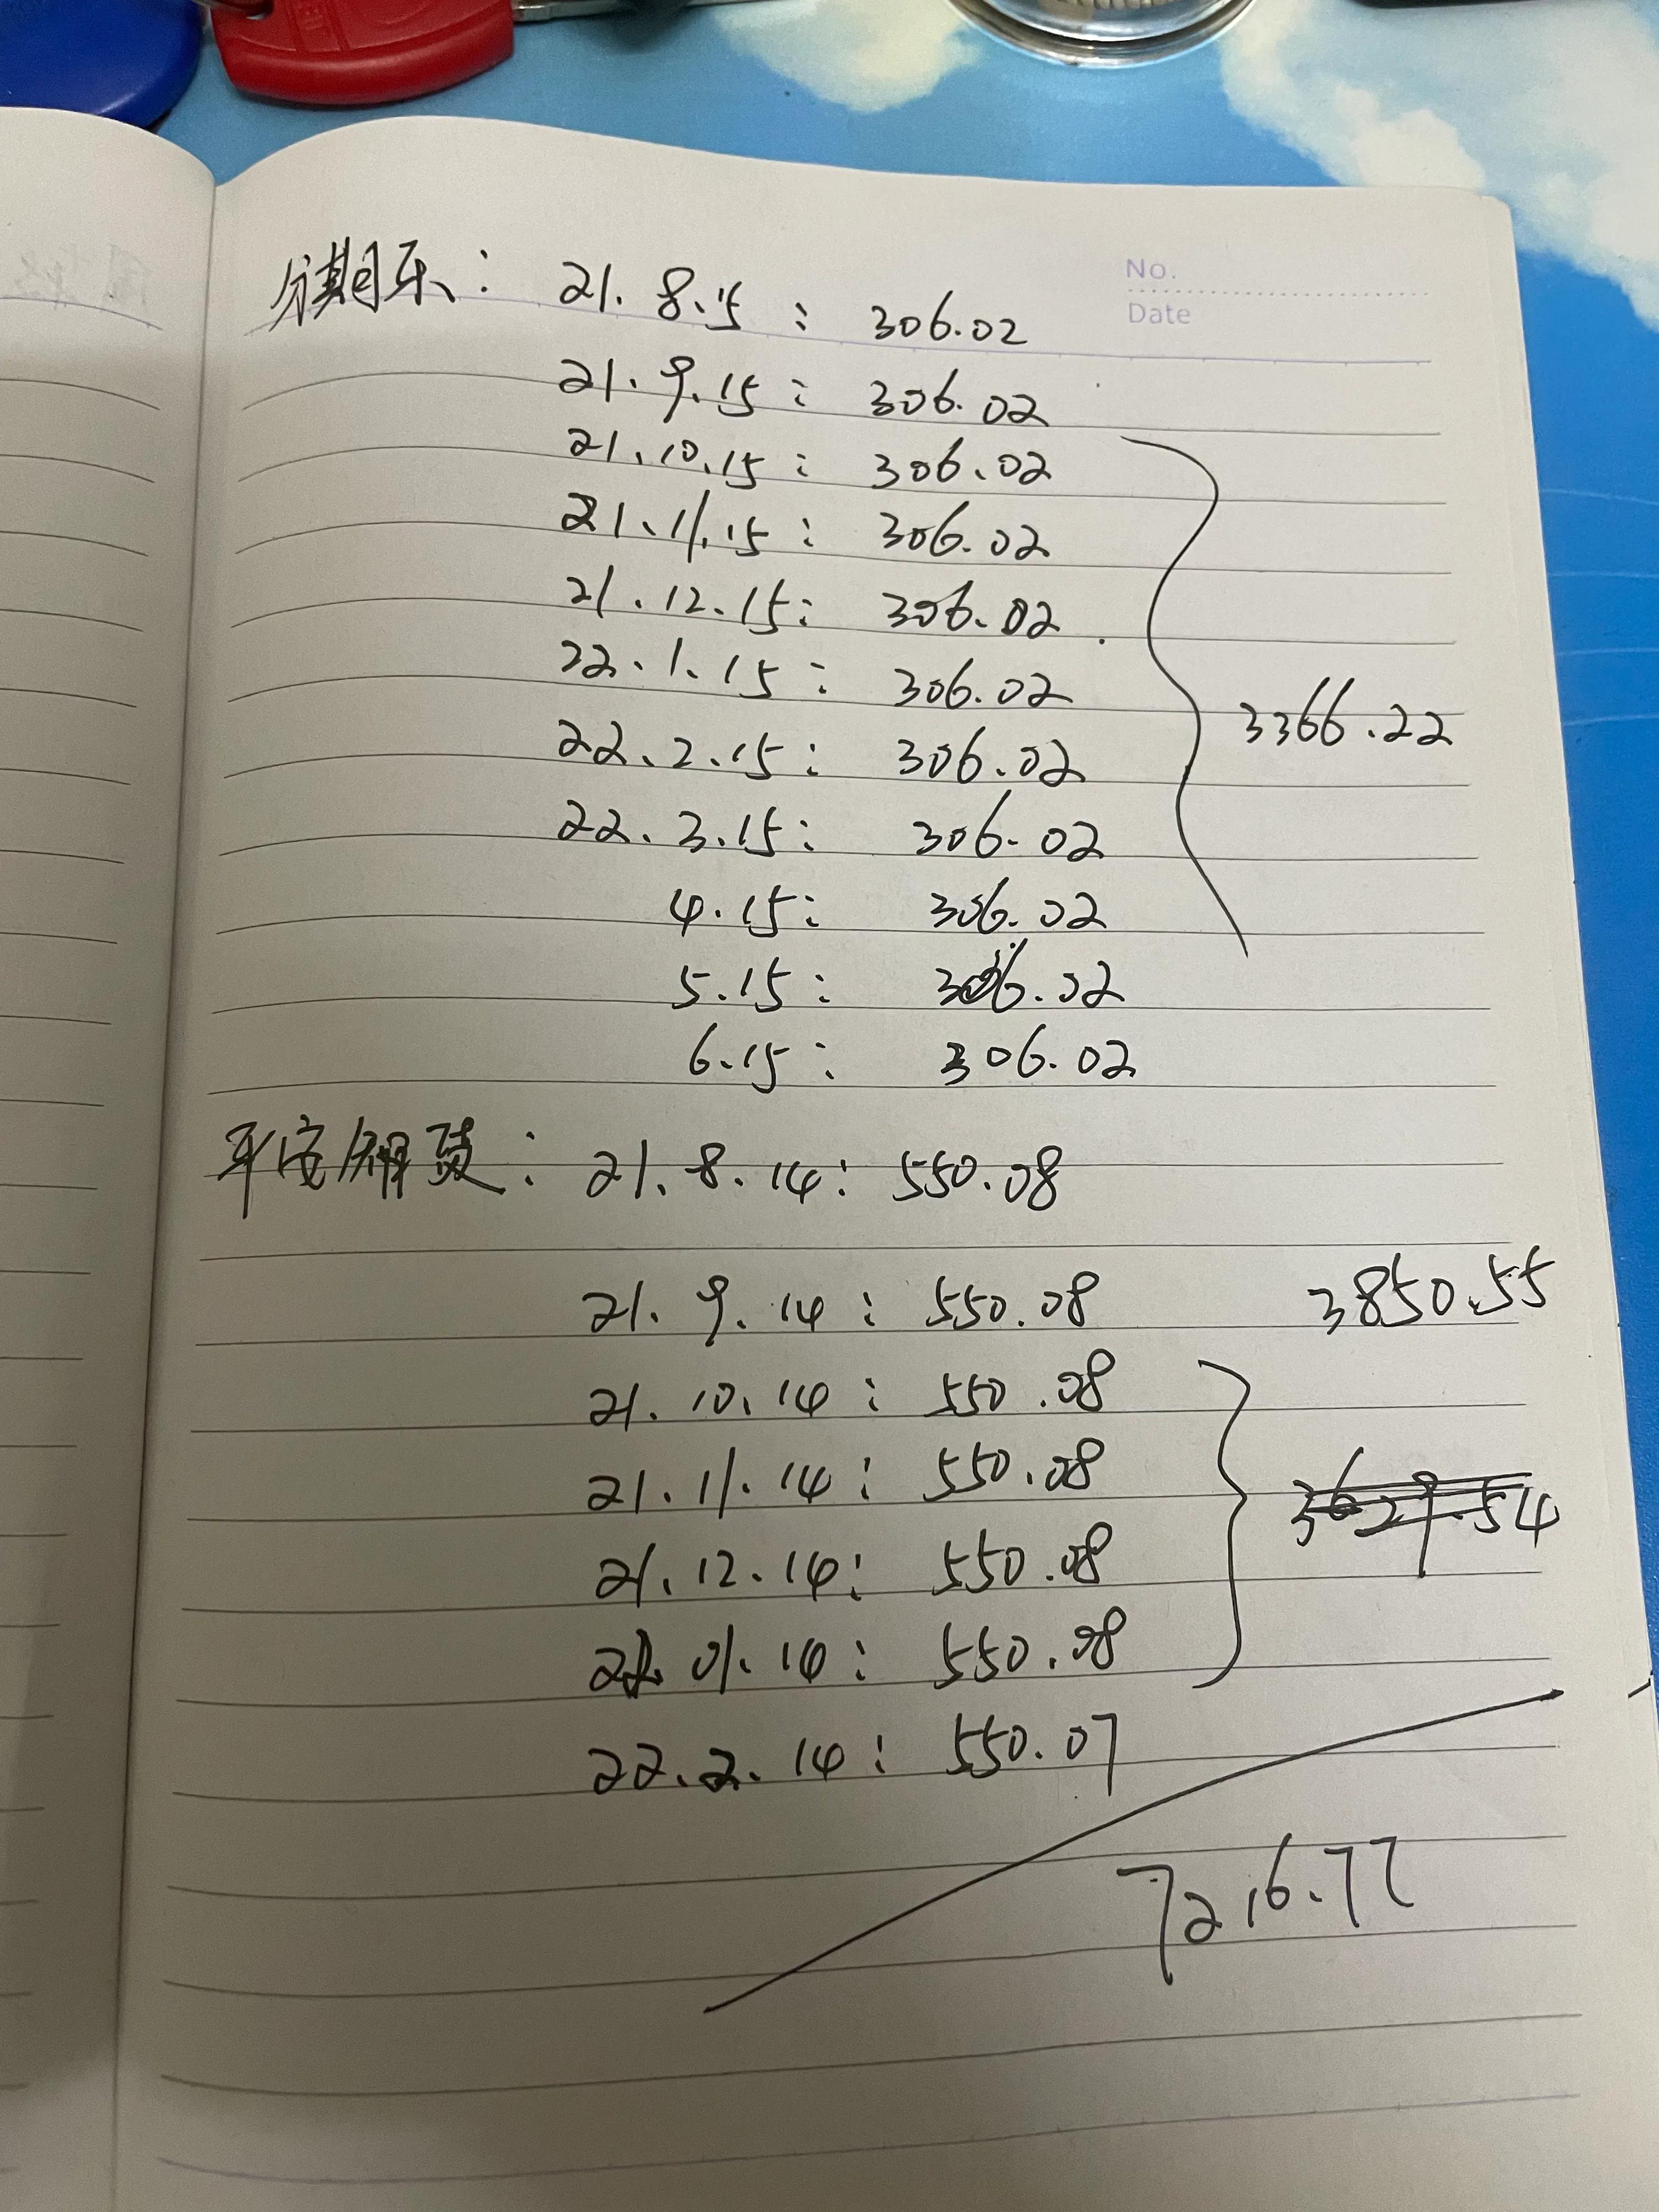 No.
Date
分期乐: 21.8.15: 306.02
21.9.15: 306.02
21.10.15: 306.02
21.11.15: 306.02
21.12.15: 306.02
22.1.15: 306.02
22.2.15: 306.02
3366.22
22.3.15: 306.02
4.15: 306.02
5.15: 306.02
6.15: 306.02
平安: 21.8.14: 550.08
21.9.14: 550.08
3850.55
21.10.14: 550.08
21.11.14: 550.08
3629.54
21.12.14: 550.08
22.01.14: 550.08
22.2.14: 550.07
7216.77